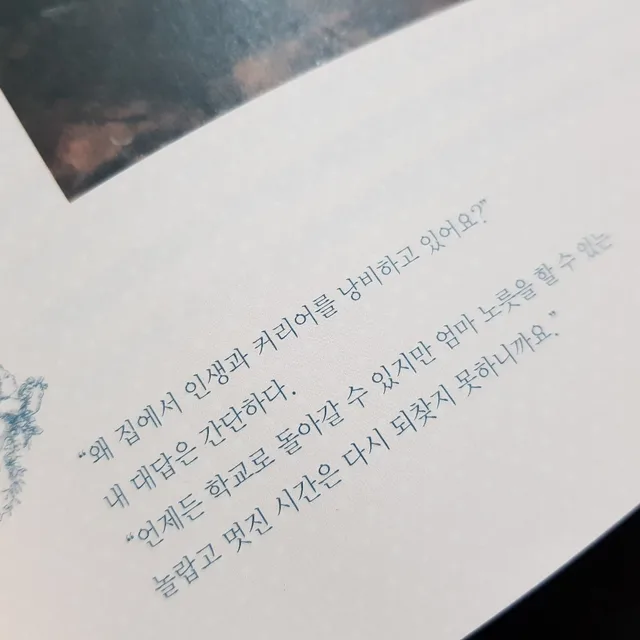 “왜 집에서 인생과 커리어를 낭비하고 있어요?”
내 대답은 간단하다.
“언제든 학교로 돌아갈 수 있지만 엄마 노릇을 할 수 있는
놀랍고 멋진 시간은 다시 되찾지 못하니까요.”